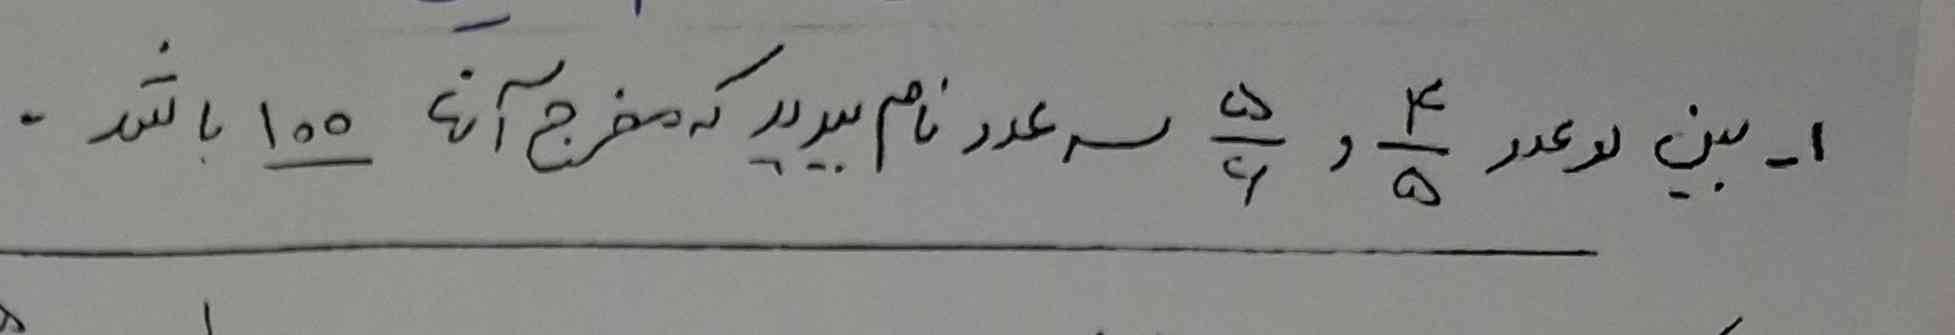 ۱- بین دو عدد ۴/۵ و ۵/۶ سه عدد نام ببرید که مخرج آنها ۱۰۰ باشد.